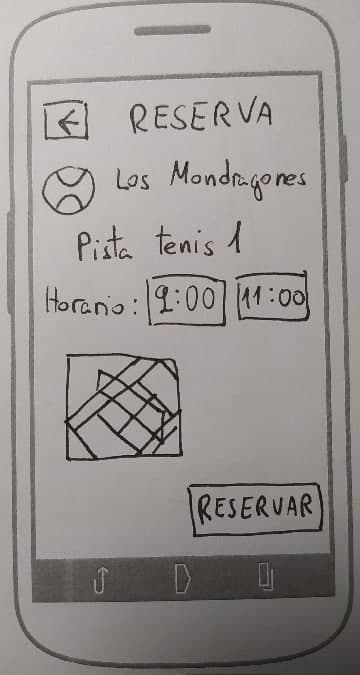 RESERVA
Los Mondragones
Pista tenis 1
Horario: 9:00 11:00
RESERVAR